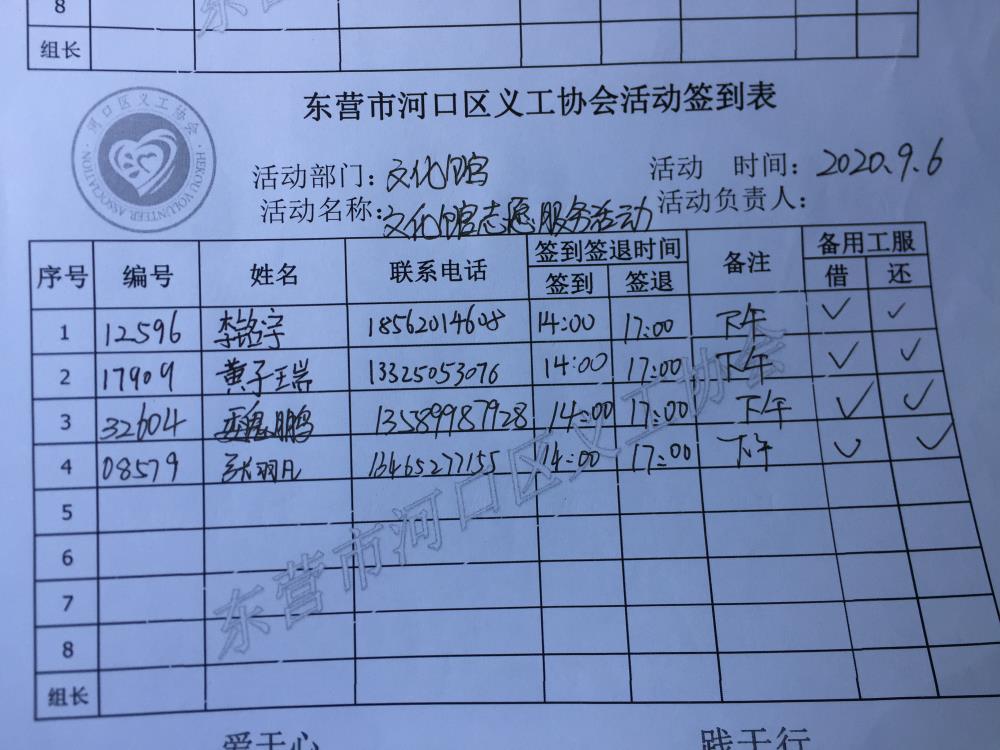 8
组长
东营市河口区义工协会活动签到表
河口区义工协会
HEKOU VOLUNTEER ASSOCIATION
活动部门：文化馆 活动 时间：2020.9.6
活动名称：文化馆志愿服务活动 活动负责人：
序号 编号 姓名 联系电话 签到签退时间 备注 备用工服
签到 签退 借 还
1 12596 李铭宇 18562014608 14:00 17:00 下午 ✓ ✓
2 17909 黄子瑞 13325053076 14:00 17:00 下午 ✓ ✓
3 32604 鹏 13589987928 14:00 17:00 下午 ✓ ✓
4 08579 张羽凡 13465277155 14:00 17:00 下午 ✓ ✓
5
6
7
8
组长
东营市河口区义工协会
爱于心 践于行